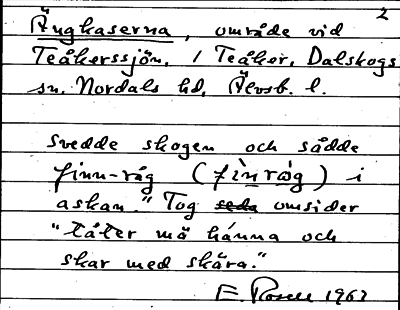 2
Ängkaserna, område vid
Teåkerssjön, i Teåker, Dalskogs
sn. Nordals hd, Älvsb. l.
svedde skogen och sådde
finn-råg (fìnråg) i
askan." Tog seda omsider
"tåter mä hánna och
skar med skära."
E. Rosell 1962